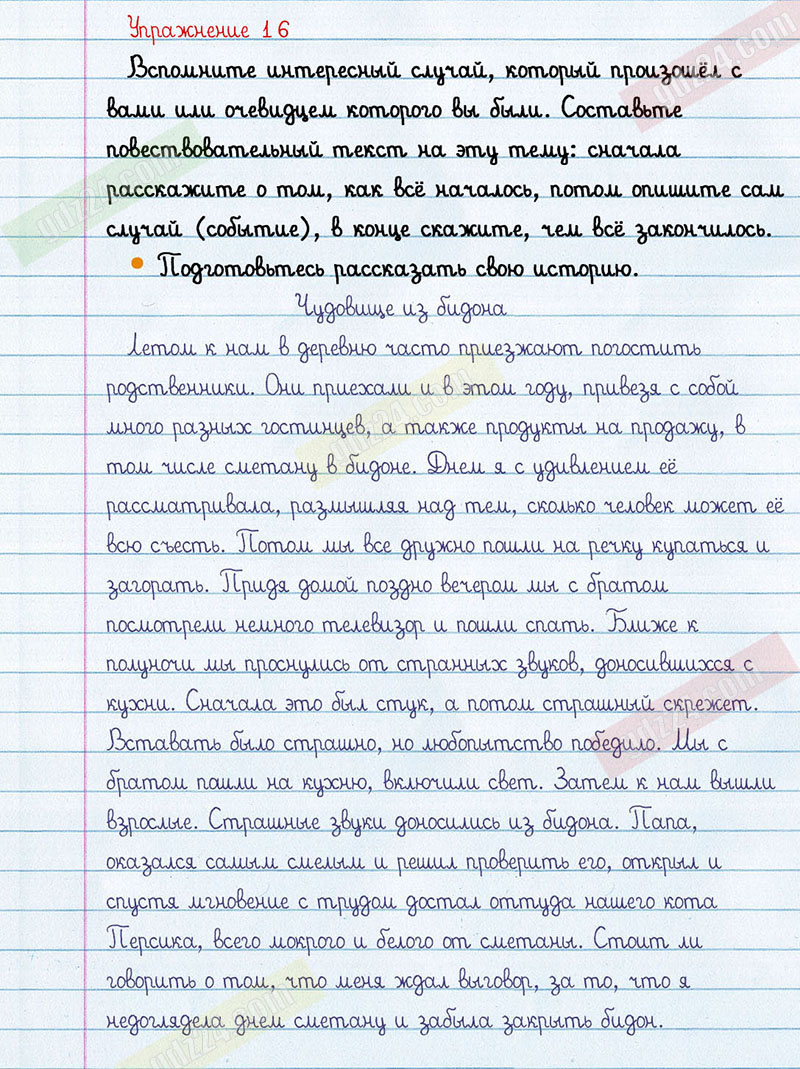 Упражнение 16
Вспомните интересный случай, который произошёл с
вами или очевидцем которого вы были. Составьте
повествовательный текст на эту тему: сначала
расскажите о том, как всё началось, потом опишите сам
случай (событие), в конце скажите, чем всё закончилось.
• Подготовьтесь рассказать свою историю.
Чудовище из бидона
Летом к нам в деревню часто приезжают погостить
родственники. Они приехали и в этом году, привезя с собой
много разных гостинцев, а также продукты на продажу, в
том числе сметану в бидоне. Днем я с удивлением её
рассматривала, размышляя над тем, сколько человек может её
всю съесть. Потом мы все дружно пошли на речку купаться и
загорать. Придя домой поздно вечером мы с братом
посмотрели немного телевизор и пошли спать. Ближе к
полуночи мы проснулись от странных звуков, доносившихся с
кухни. Сначала это был стук, а потом страшный скрежет.
Вставать было страшно, но любопытство победило. Мы с
братом пошли на кухню, включили свет. Затем к нам вышли
взрослые. Страшные звуки доносились из бидона. Папа,
оказался самым смелым и решил проверить его, открыл и
спустя мгновение с трудом достал оттуда нашего кота
Персика, всего мокрого и белого от сметаны. Стоит ли
говорить о том, что меня ждал выговор, за то, что я
недоглядела днем сметану и забыла закрыть бидон.